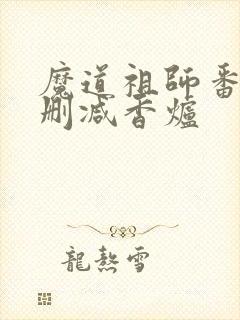 魔道祖師番
刪減香爐
龍熬雪